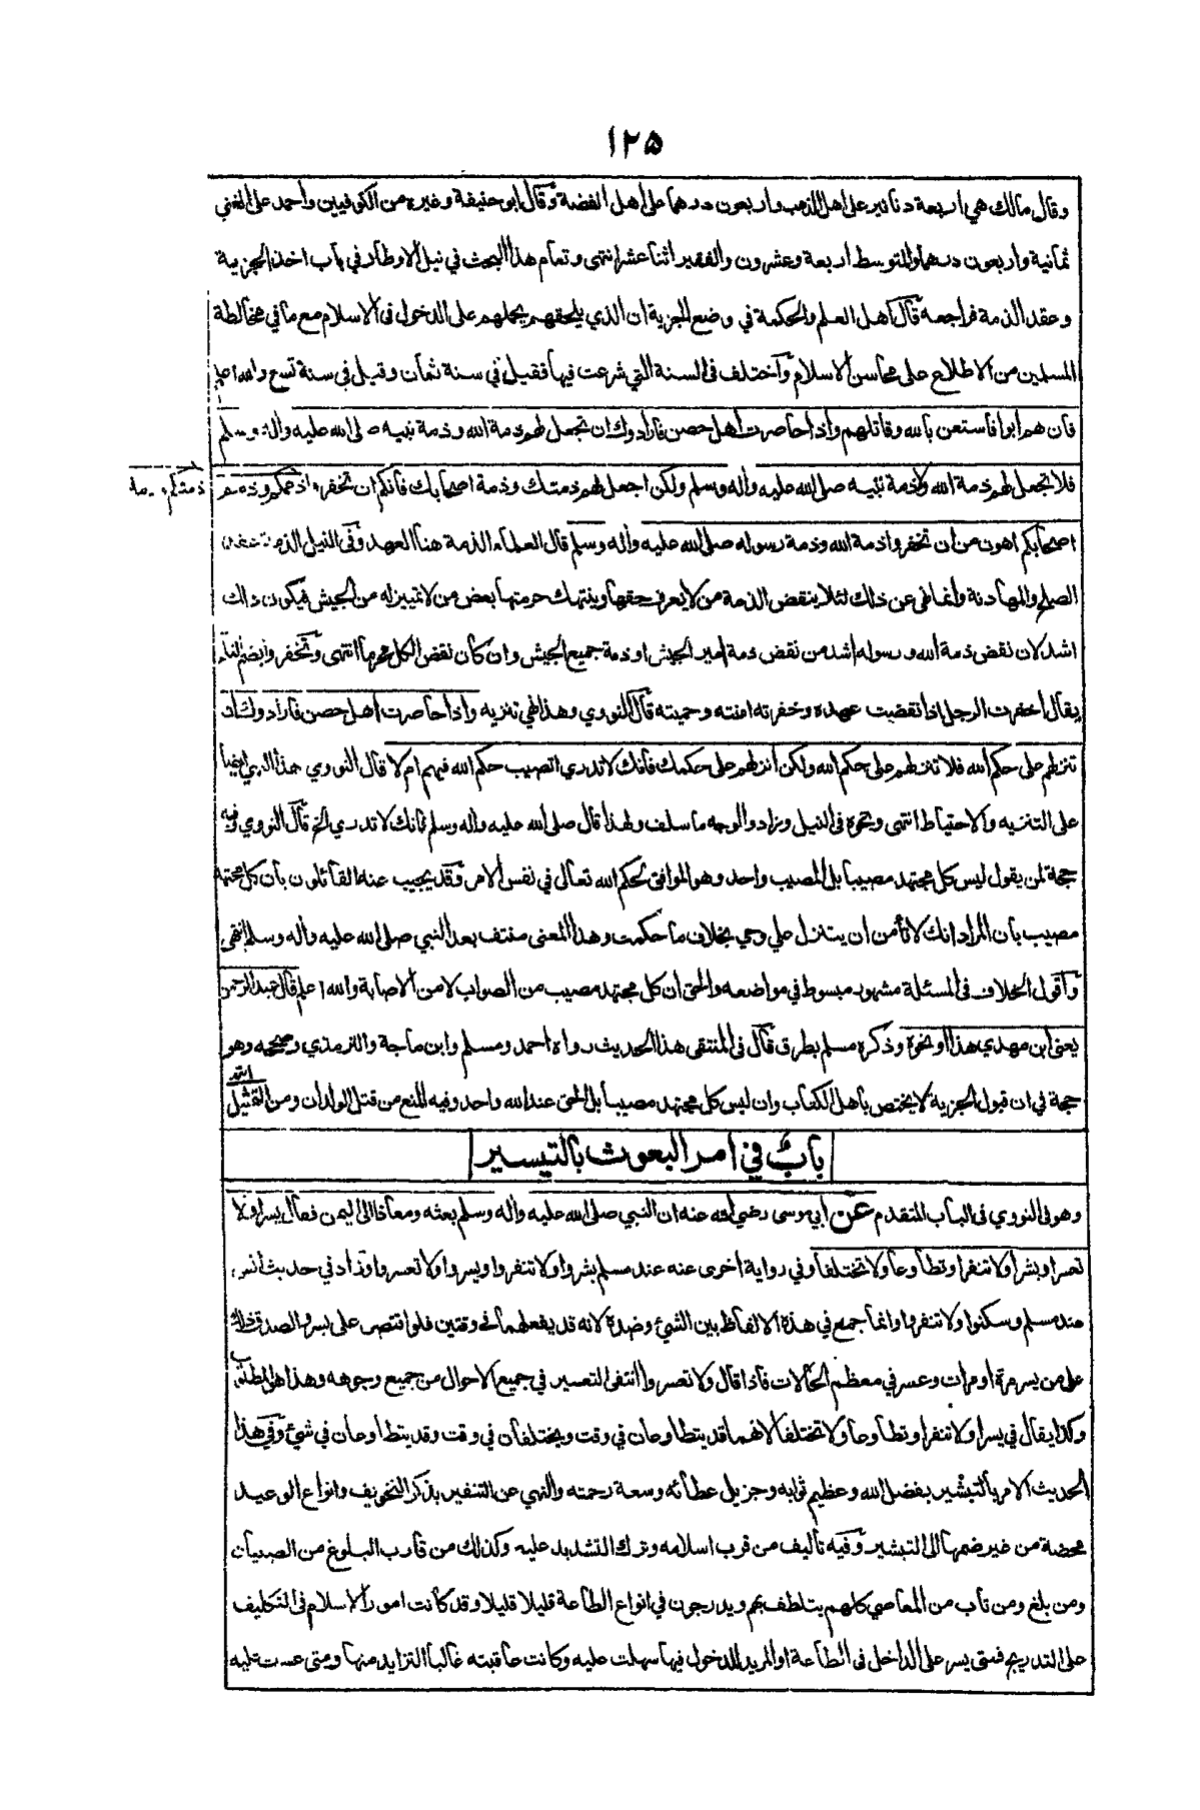 ١٢٥
وقال مالك هي اربعة دنانير على اهل الذهب واربعون درهما على اهل الفضة وقال ابو حنيفة وغيره من الكوفيين واحمد على الغني
ثمانية واربعون درهما والمتوسط اربعة وعشرون والفقير اثنا عشر انتهى وتمام هذا البحث في نيل الاوطار في باب اخذ الجزية
وعقد الذمة فراجعه قال اهل العلم والحكمة في وضع الجزية ان الذي يلحقهم يحملهم على الدخول فى الاسلام مع ما في مخالطة
المسلمين من الاطلاع على محاسن الاسلام واختلف فى السنة التي شرعت فيها فقيل في سنة ثمان وقيل في سنة تسع والله اعلم
فان هم ابوا فاستعن بالله وقاتلهم واذا حاصرت اهل حصن فارادوك ان تجعل لهم ذمة الله وذمة نبيه صلى الله عليه واله وسلم
فلا تجعل لهم ذمة الله ولا ذمة نبيه صلى الله عليه واله وسلم ولكن اجعل لهم ذمتك وذمة اصحابك فانكم ان تخفروا ذممكم وذمم
ذمتكم
اصحابكم اهون من ان تخفروا ذمة الله وذمة رسوله صلى الله عليه واله وسلم قال العلماء الذمة هنا العهد وفى النيل الذمة عقد
الصلح والمهادنة وانما نهى عن ذلك لئلا ينقض الذمة من لا يعرف حقها وينتهك حرمتها بعض من لا تمييز له من الجيش فيكون ذلك
اشد لان نقض ذمة الله ورسوله اشد من نقض ذمة امير الجيش او ذمة جميع الجيش وان كان نقض الكل محرما انتهى وتخفروا بضم التاء
يقال اخفرت الرجل اذا نقضت عهده وخفرته امنته وحميته قال النووي وهذا نهي تنزيه واذا حاصرت اهل حصن فارادوك ان
تنزلهم على حكم الله فلا تنزلهم على حكم الله ولكن انزلهم على حكمك فانك لا تدري اتصيب حكم الله فيهم ام لا قال النووي هذا النهي ايضا
على التنزيه والاحتياط انتهى ونحوه فى النيل وزاد والوجه ما سلف ولهذا قال صلى الله عليه واله وسلم فانك لا تدري الخ قال النووي وفيه
حجة لمن يقول ليس كل مجتهد مصيبا بل المصيب واحد وهو الموافق لحكم الله تعالى في نفس الامر وقد يجيب عنه القائلون بان كل مجتهد
مصيب بان المراد انك لا تأمن ان يتنزل علي وحي بخلاف ما حكمت وهذا المعنى منتف بعد النبي صلى الله عليه واله وسلم انتهى
واقول الخلاف فى المسئلة مشهور مبسوط في مواضعه والحق ان كل مجتهد مصيب من الصواب لا من الاصابة والله اعلم قال عبد الرحمن
يعني ابن مهدي هذا او نحوه وذكره مسلم بطرق قال فى المنتقى هذا الحديث رواه احمد ومسلم وابن ماجة والترمذي وصححه وهو
حجة في ان قبول الجزية لا يختص باهل الكتاب وان ليس كل مجتهد مصيبا بل الحق عند الله واحد وفيه المنع من قتل الولدان ومن التمثيل انتهى
باب في امر البعوث بالتيسير
وهو فى النووي فى الباب المتقدم عن ابي موسى رضي الله عنه ان النبي صلى الله عليه واله وسلم بعثه ومعاذا الى اليمن فقال يسرا ولا
تعسرا وبشرا ولا تنفرا وتطاوعا ولا تختلفا وفي رواية اخرى عنه عند مسلم بشروا ولا تنفروا ويسروا ولا تعسروا وزاد في حديث انس
عند مسلم وسكنوا ولا تنفروا وانما جمع في هذه الالفاظ بين الشئ وضده لانه قد يفعلهما فى وقتين فلو اقتصر على يسروا لصدق ذلك
على من يسر مرة او مرات وعسر في معظم الحالات فاذا قال ولا تعسروا انتفى التعسير في جميع الاحوال من جميع وجوهه وهذا هو المطلوب
وكذا يقال في يسرا ولا تنفرا وتطاوعا ولا تختلفا لانهما قد يتطاوعان في وقت ويختلفان في وقت وقد يتطاوعان في شئ وفي هذا
الحديث الامر بالتبشير بفضل الله وعظيم ثوابه وجزيل عطائه وسعة رحمته والنهي عن التنفير بذكر التخويف وانواع الوعيد
محضة من غير ضمها الى التبشير وفيه تاليف من قرب اسلامه وترك التشديد عليه وكذلك من قارب البلوغ من الصبيان
ومن بلغ ومن تاب من المعاصي كلهم يتلطف بهم ويدرجون في انواع الطاعة قليلا قليلا وقد كانت امور الاسلام فى التكليف
على التدريج فمتى يسر على الداخل فى الطاعة او المريد للدخول فيها سهلت عليه وكانت عاقبته غالبا التزايد منها ومتى عسرت عليه